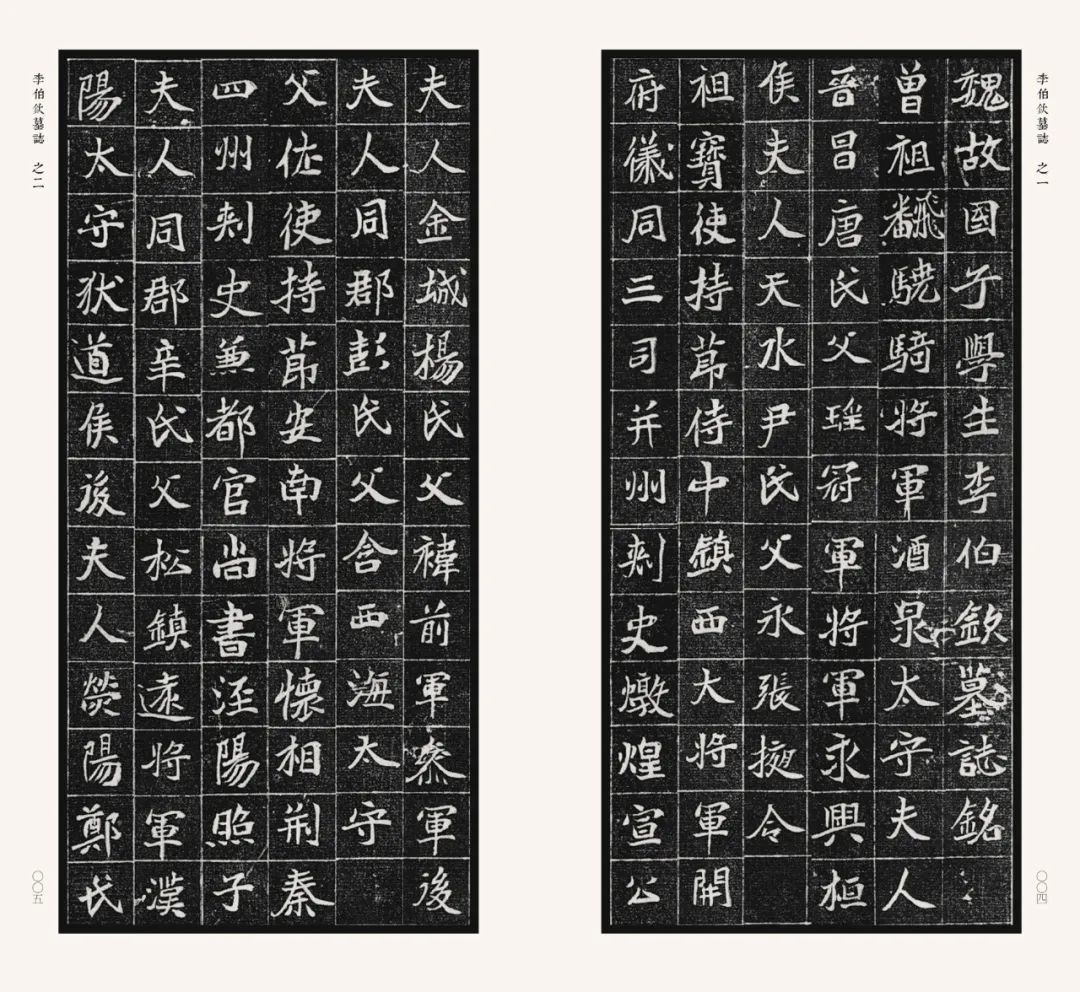 李伯欽墓誌 之一
魏故國子學生李伯欽墓誌銘
曾祖翻驍騎將軍酒泉太守夫人
晉昌唐氏父瑶冠軍將軍永興桓
侯夫人天水尹氏父永張掖令
祖寶使持節侍中鎮西大將軍開
府儀同三司并州刾史燉煌宣公
〇〇四
李伯欽墓誌 之二
夫人金城楊氏父褘前軍叅軍後
夫人同郡彭氏父含西海太守
父佐使持節安南將軍懷相荊秦
四州刾史兼都官尚書涇陽照子
夫人同郡辛氏父松鎮遠將軍漢
陽太守狄道侯後夫人熒陽鄭氏
〇〇五